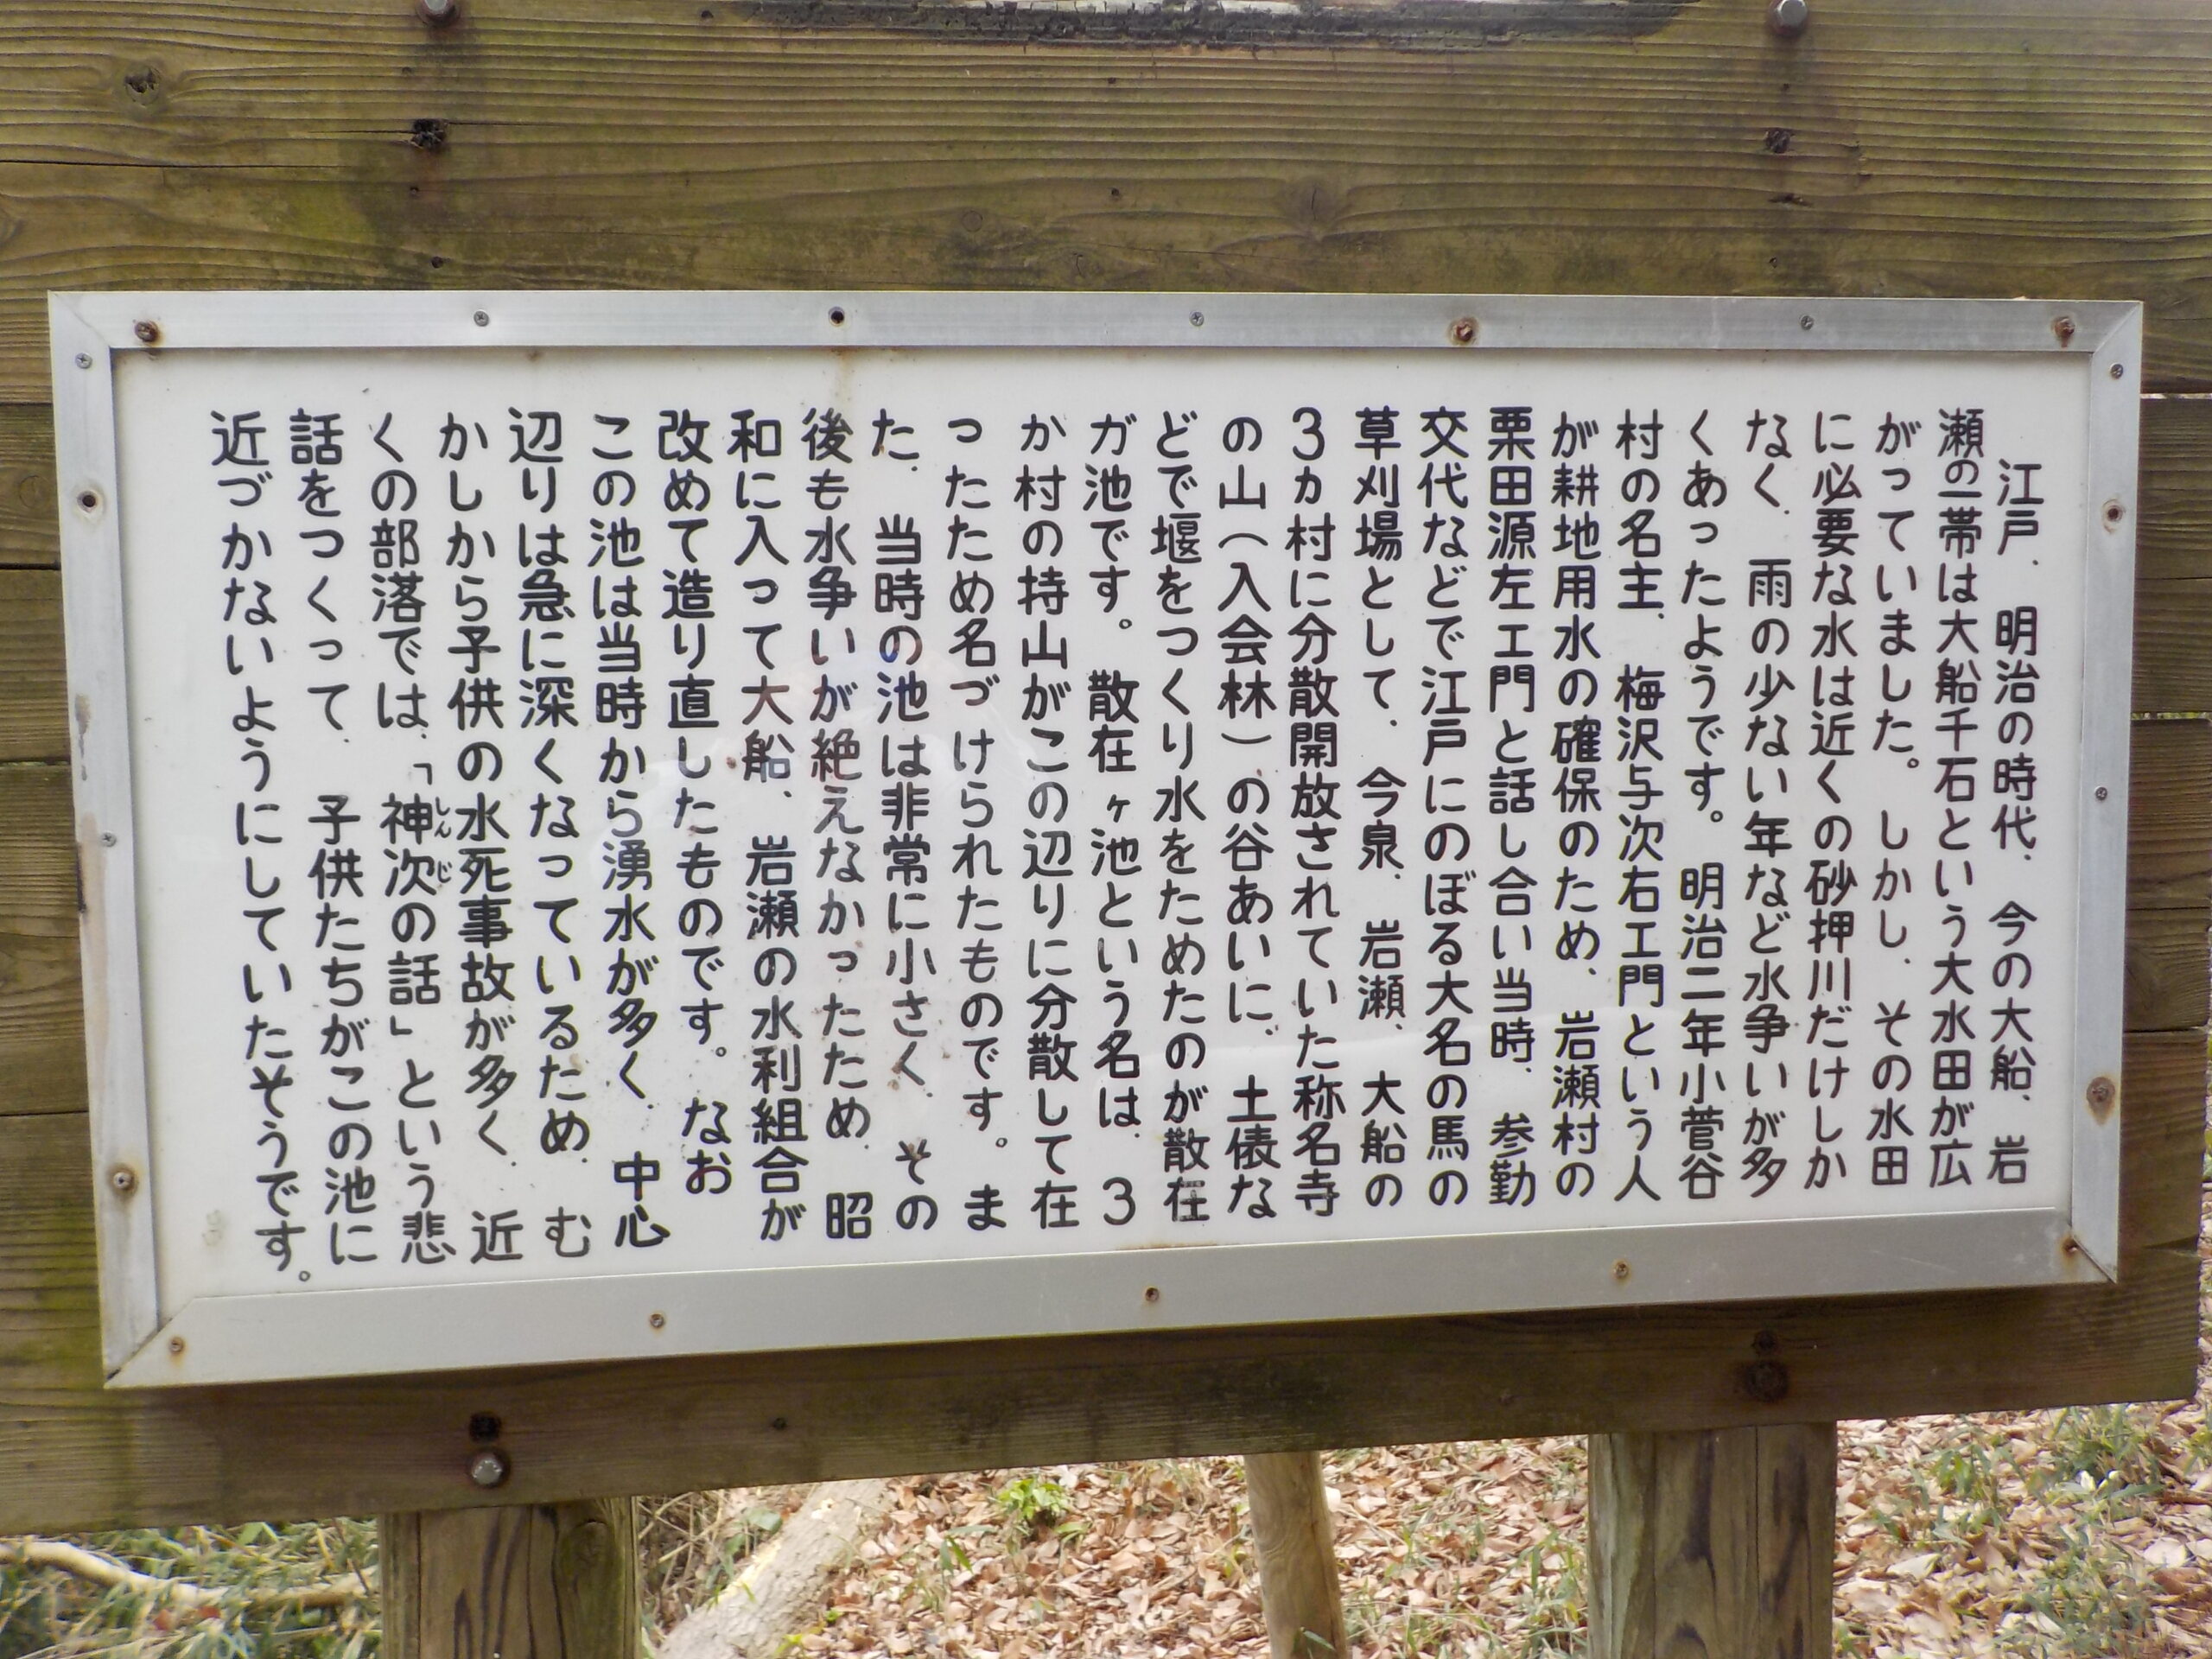 江戸、明治の時代、今の大船、岩
瀬の一帯は大船千石という大水田が広
がっていました。しかし、その水田
に必要な水は近くの砂押川だけしか
なく、雨の少ない年など水争いが多
くあったようです。明治二年小菅谷
村の名主、梅沢与次右エ門という人
が耕地用水の確保のため、岩瀬村の
栗田源左エ門と話し合い当時、参勤
交代などで江戸にのぼる大名の馬の
草刈場として、今泉、岩瀬、大船の
3カ村に分散開放されていた称名寺
の山(入会林)の谷あいに、土俵な
どで堰をつくり水をためたのが散在
ガ池です。散在ヶ池という名は、3
か村の持山がこの辺りに分散して在
ったため名づけられたものです。ま
た、当時の池は非常に小さく、その
後も水争いが絶えなかったため、昭
和に入って大船、岩瀬の水利組合が
改めて造り直したものです。なお
この池は当時から湧水が多く、中心
辺りは急に深くなっているため、む
かしから子供の水死事故が多く、近
くの部落では、「神次の話」という悲
しんじ
話をつくって、子供たちがこの池に
近づかないようにしていたそうです。